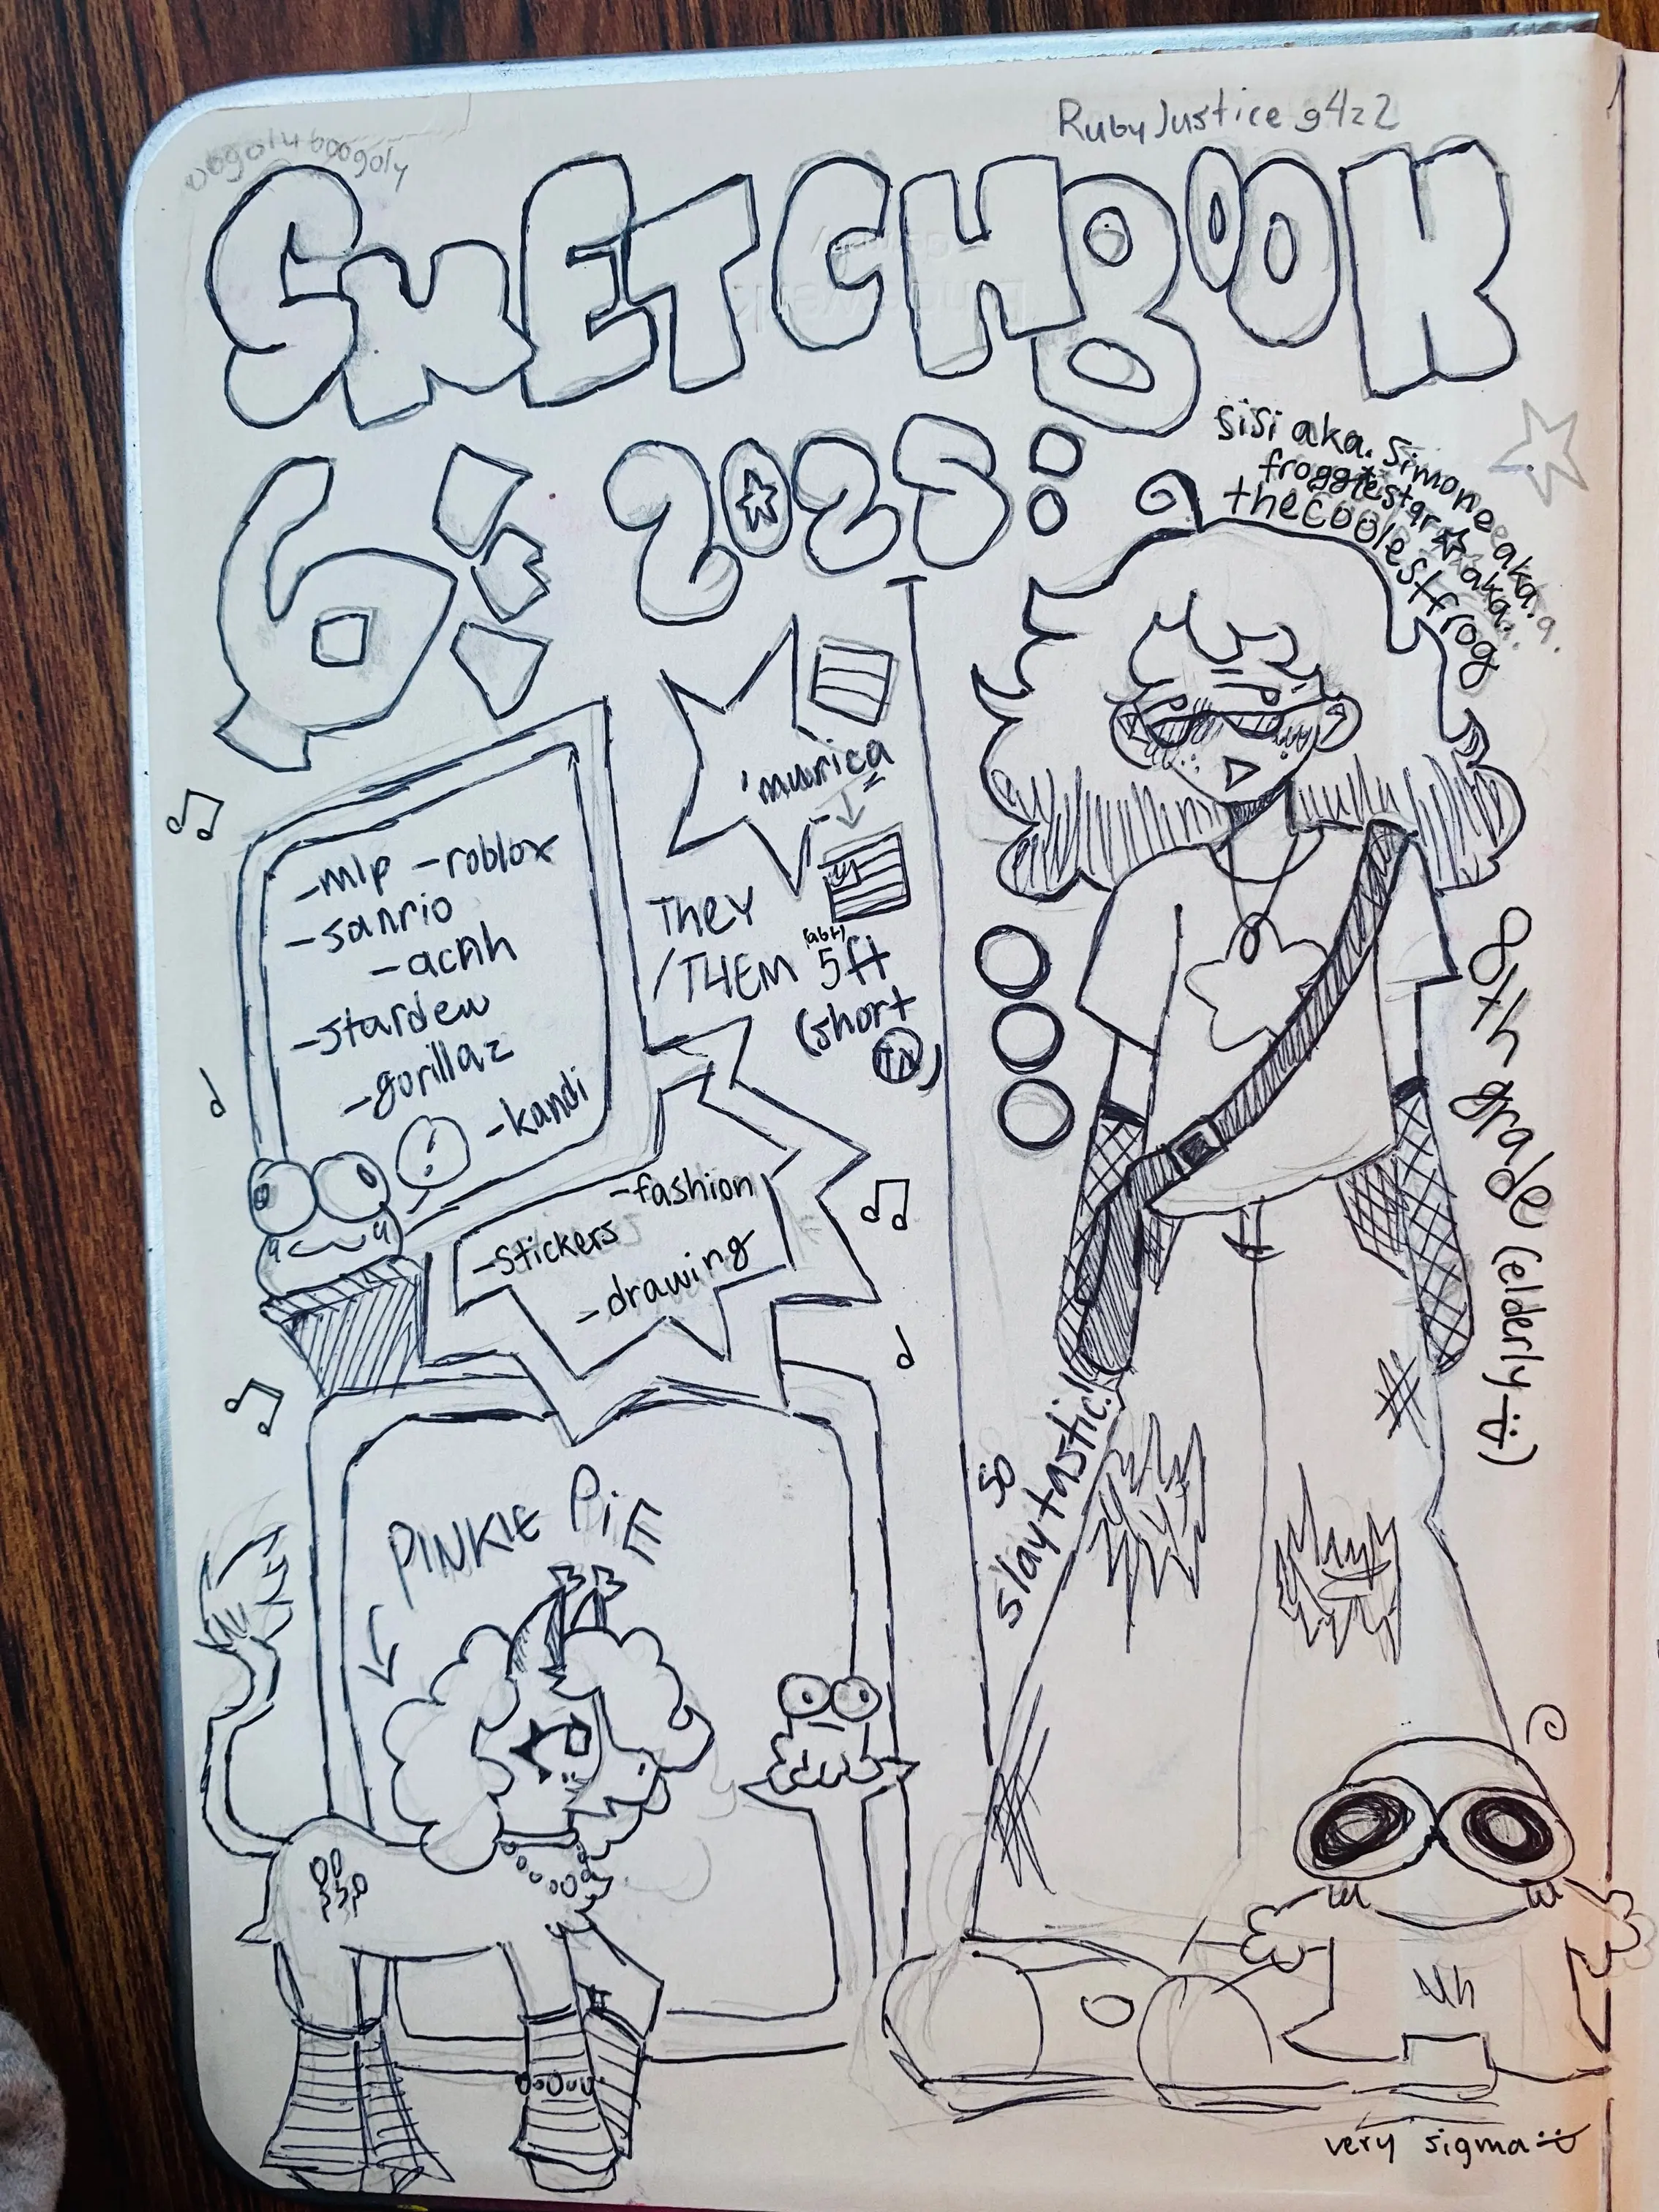 oogoly boogoly
RubyJustice g4z2
SKETCHBOOK
6: 2025:
sisi aka. Simone aka.
froggiestar☆ aka.
thecoolestfrog
'murica
-mlp -roblox
-sanrio
-acnh
-stardew
-gorillaz
-kandi
!
They
/THEM
(abt)
5ft
(short
TM)
8th grade (elderly :D)
-fashion
-stickers
-drawing
so
slaytastic!!
PINKIE PIE
uh
very sigma :D